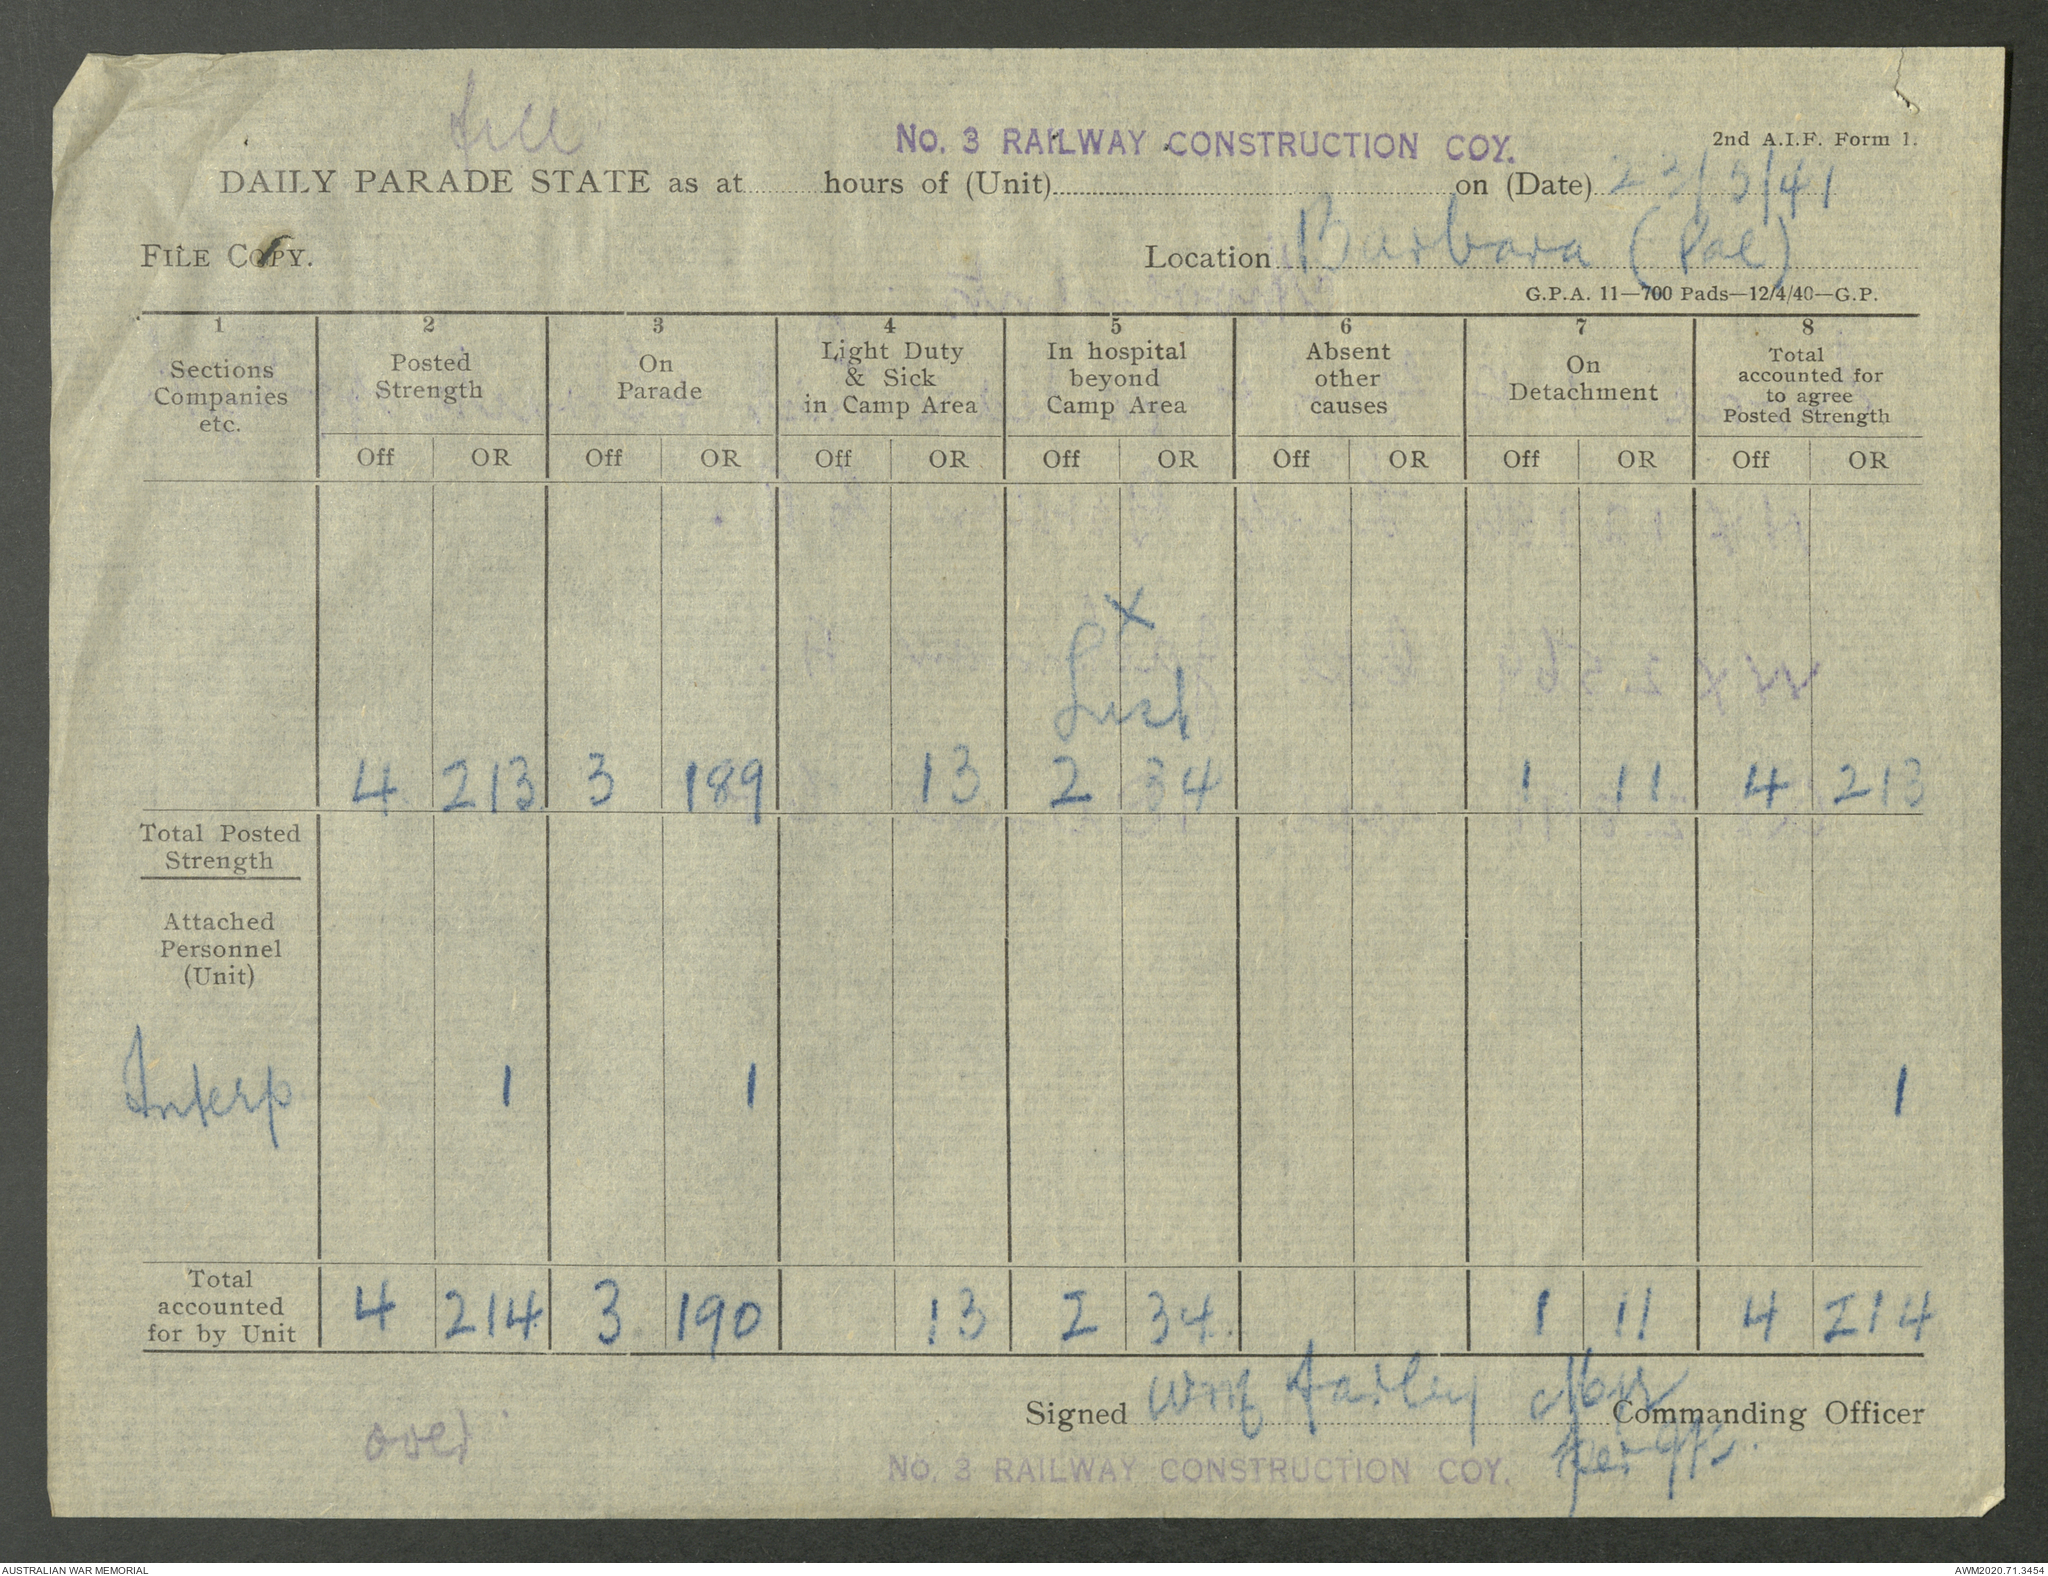 No. 3 RAILWAY CONSTRUCTION COY.
2nd A.I.F. Form 1.
DAILY PARADE STATE as at hours of (Unit) on (Date) 23/5/41
FILE COPY.
Location Burbara (Pal)
G.P.A. 11—700 Pads—12/4/40—G.P.
1 2 3 4 5 6 7 8
Sections Companies etc. Posted Strength On Parade Light Duty & Sick in Camp Area In hospital beyond Camp Area Absent other causes On Detachment Total accounted for to agree Posted Strength
Off OR Off OR Off OR Off OR Off OR Off OR Off OR
X
List
4 213 3 189 13 2 34 1 11 4 213
Total Posted
Strength
Attached
Personnel
(Unit)
Interp 1 1 1
Total
accounted
for by Unit 4 214 3 190 13 2 34 1 11 4 214
Signed Commanding Officer
over
No. 3 RAILWAY CONSTRUCTION COY.
AUSTRALIAN WAR MEMORIAL
AWM2020.71.3454